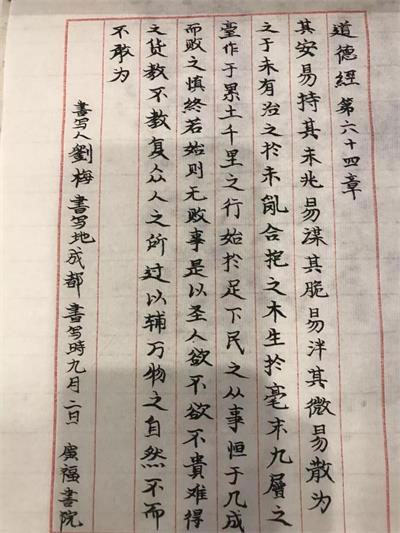 道德經第六十四章
其安易持其未兆易謀其脆易泮其微易散为
之于未有治之於未亂合抱之木生於毫末九層之
臺作于累土千里之行始於足下民之从事恒于几成
而败之慎終若始则无败事是以圣人欲不欲不貴难得
之货教不教复众人之所过以辅万物之自然不而
不敢为
書写人劉梅書写地成都書写時九月二日 廣福書院